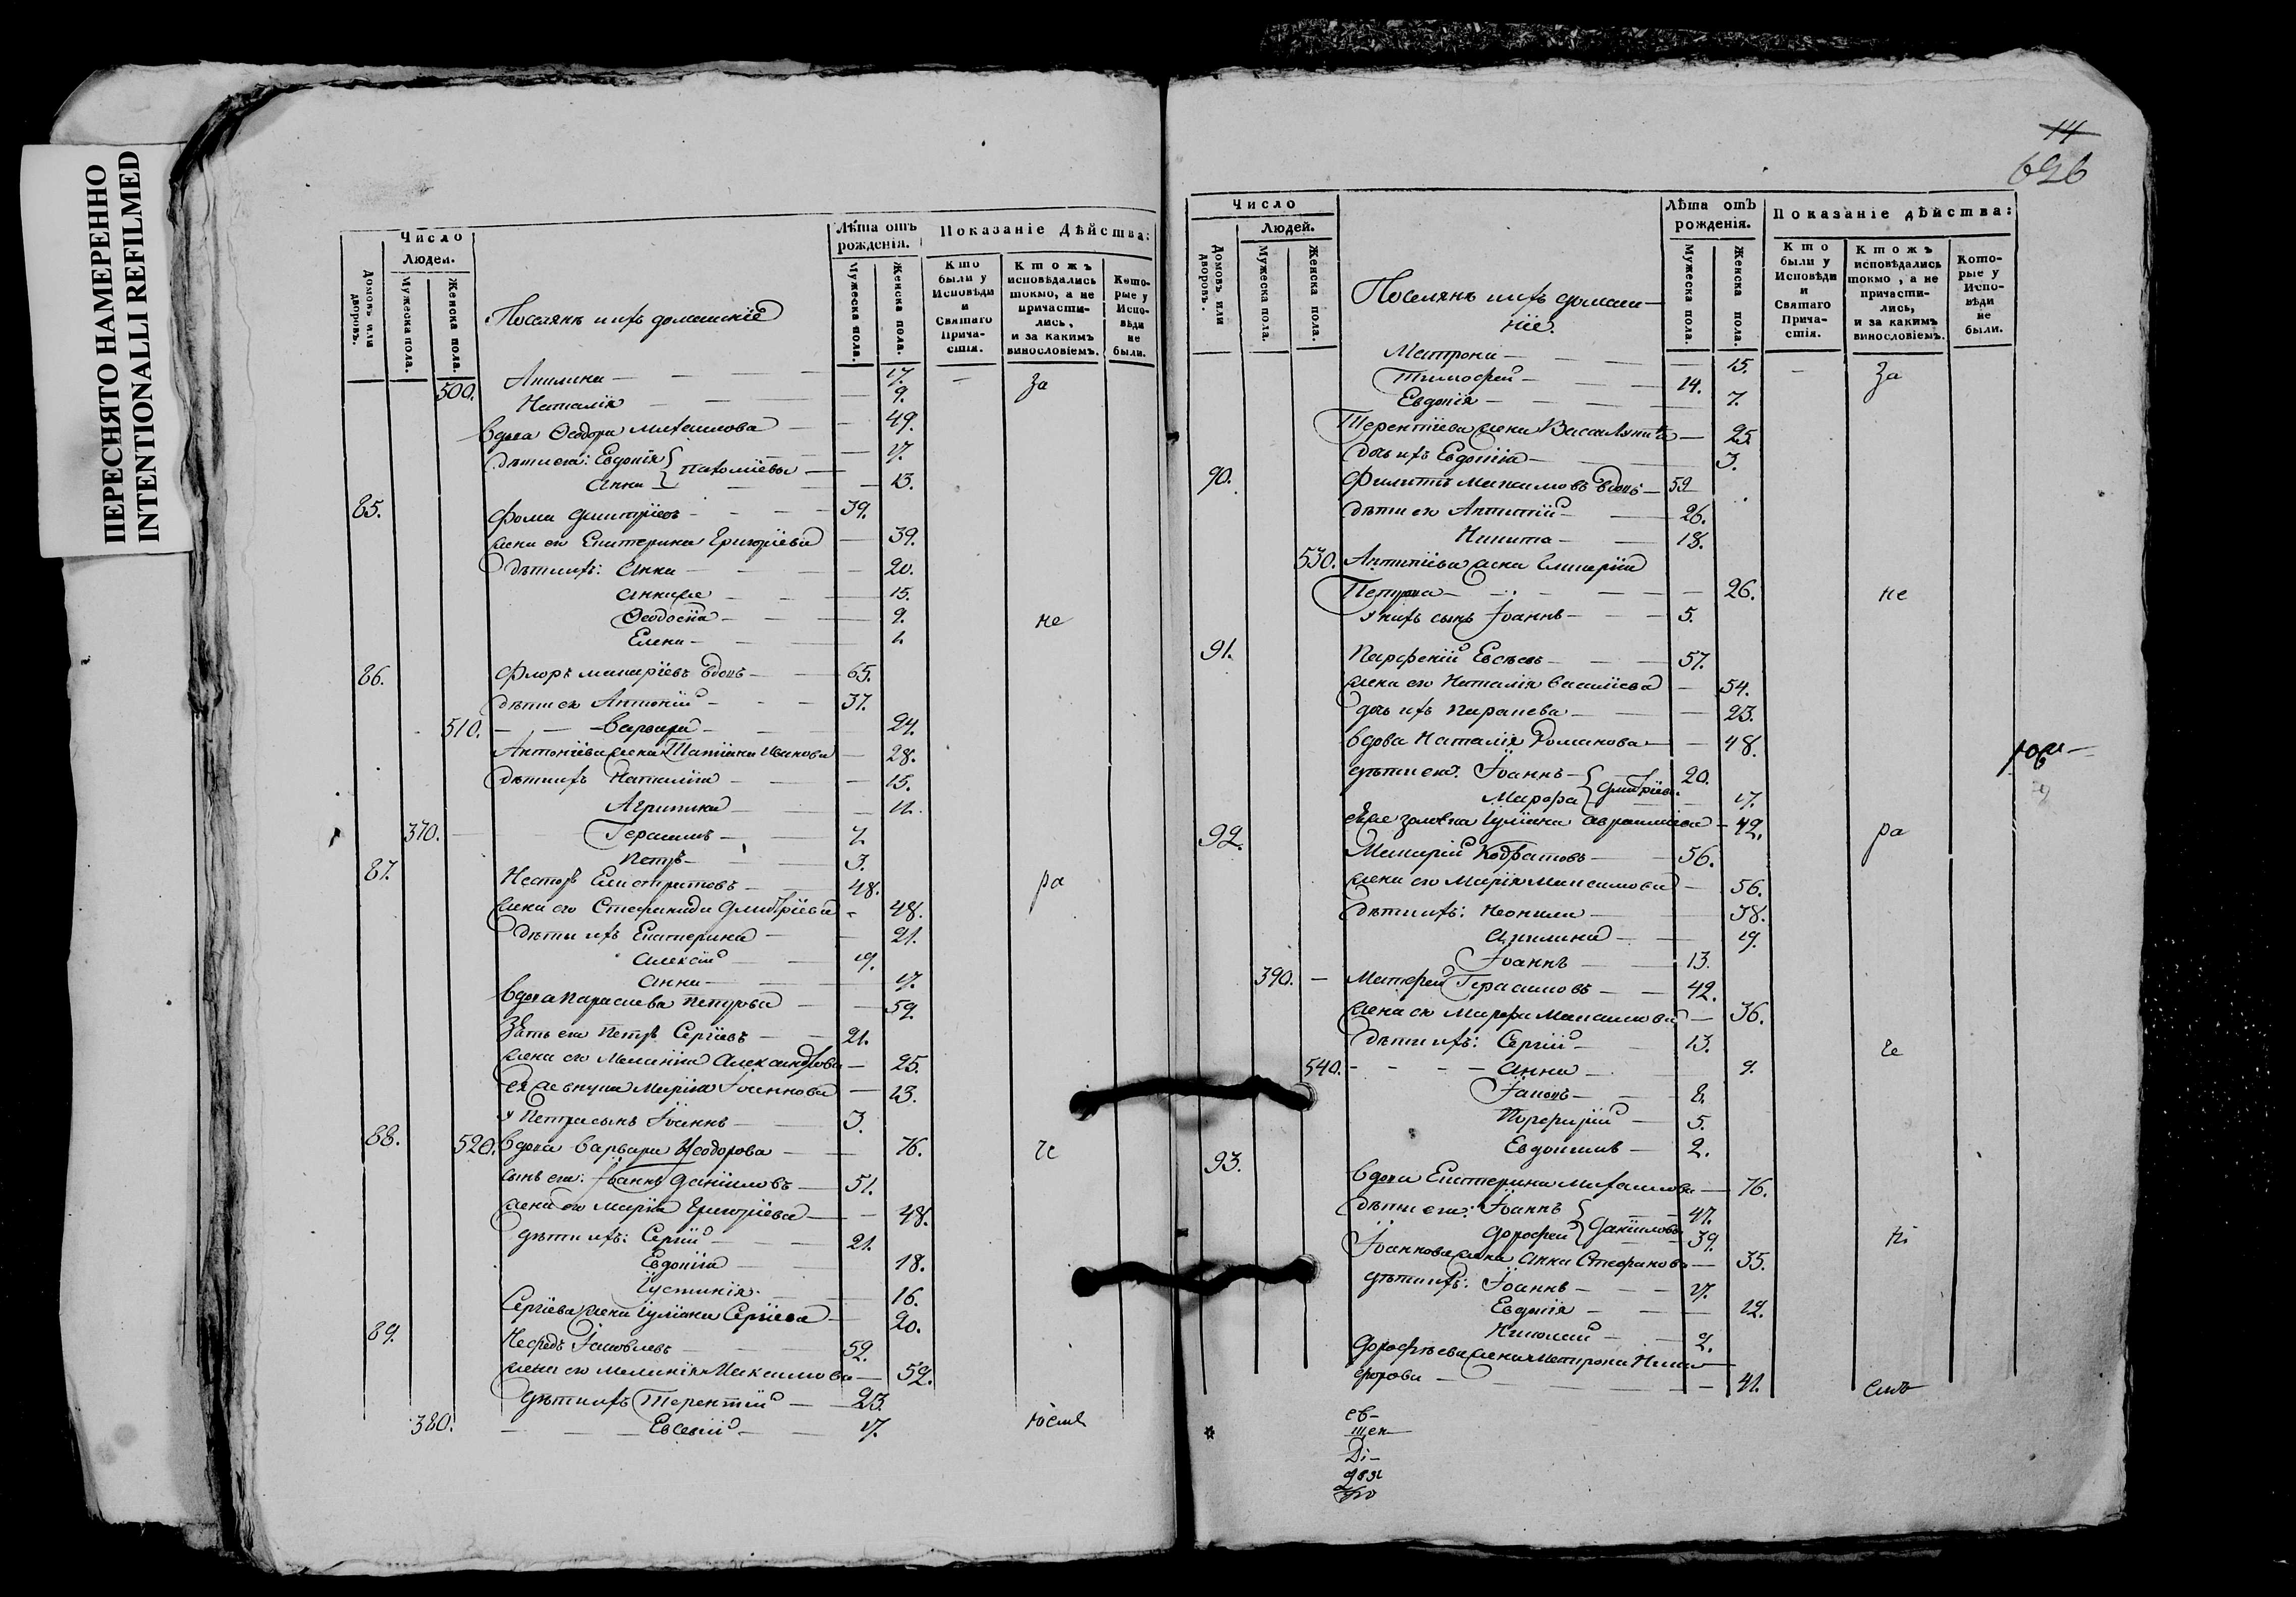 ПЕРЕСНЯТО НАМЕРЕННО
INTENTIONALLI REFILMED
Число
Людей.
Домовъ или дворовъ.
Мужеска пола.
Женска пола.
Поселянъ и ихъ домашніе
Лѣта отъ рожденія.
Мужеска пола.
Женска пола.
Показаніе дѣйства:
Кто были у Исповѣди и Святаго Прича-стія.
Ктожъ исповѣдались токмо, а не причасти-лись, и за какимъ винословіемъ.
Кото-рые у Испо-вѣди не были.
Акилина — 17. — За
500. Наталія — 9.
вдова Ѳеодора Михаилова — 49.
дѣти ея: Евдокія 17.
Анна Пахоміевы — 13.
85. Фома Димитріевъ — 39.
жена его Екатерина Григоріева — 39.
Дѣти ихъ: Анна — 20.
Анна же — 15.
Ѳеодосіа — 9. не
Елена —
86. Флоръ Макаріевъ вдовъ — 65.
дѣти его Антоній — 37.
510. — Варвара — 24.
Антоніева жена Татіана Иванова — 28.
Дѣти ихъ Наталіа — 15.
Агрипина — 11.
370. Герасимъ — 7.
Петръ — 3.
87. Несторъ — 48. ра
жена его Стефанида Димитріева — 48.
Дѣти ихъ Екатерина — 21.
Алексій — 19.
Анна — 17.
вдова Параскева Петрова — 59.
Зять ея Петръ Сергіевъ — 21.
жена его Меланіа Александрова — 25.
ея же внука Маріа Іоаннова — 13.
у Петра сынъ Іоаннъ — 3.
88. 520. вдова Варвара Ѳеодорова — 76. че
сынъ ея: Іоаннъ Даніиловъ — 51.
жена его Маріа Григоріева — 48.
дѣти ихъ: Сергій — 21.
Евдокіа — 18.
Іустинія — 16.
Сергіева жена Іуліана Сергіева — 20.
89. Нефедъ Іаковлевъ — 52.
жена его Меланія Максимова — 52.
дѣти ихъ Терентій — 23.
380. — Евсевій — 17.
14
626
Число
Людей.
Домовъ или дворовъ.
Мужеска пола.
Женска пола.
Поселянъ и ихъ домаш-
ніе.
Лѣта отъ рожденія.
Мужеска пола.
Женска пола.
Показаніе дѣйства:
Кто были у Исповѣди и Святаго Прича-стія.
Ктожъ исповѣдались токмо, а не причасти-лись, и за какимъ винословіемъ.
Кото-рые у Испо-вѣди не были.
Матрона — 15. — За
Тимофей — 14.
Евдокія — 7.
Терентіева жена — 25
дочь ихъ Евдокіа — 3.
90. Филиппъ Максимовъ вдовъ — 59
дѣти его — 26.
Никита — 18.
530. жена
Петрова — 26. не
у нихъ сынъ Іоаннъ — 5.
91. Парфеній Евсѣевъ — 57.
жена его Наталія Василіева — 54.
дочь ихъ Параскева — 23.
вдова Наталія Романова — 48.
дѣти ея: Іоаннъ 20.
Марфа Димитріевы. 17.
ея же золовка Іуліана Авраміева — 42. ра
92. Макарій Кодратовъ — 56.
жена его Марія Максимова — 56.
Дѣти ихъ: Неонила — 38.
Акилина — 19.
Іоаннъ — 13.
390. — Матфей Герасимовъ — 42.
жена его Марфа Максимова — 36.
Дѣти ихъ: Сергій — 13. че
540. — Анна — 9.
Іаковъ — 8.
Порфирій — 5.
Евдокимъ — 2.
93. вдова Екатерина Михаилова — 76.
дѣти ея: Іоаннъ 47.
Дорофей Даніиловы 39.
Іоаннова жена Анна Стефанова — 35.
дѣти ихъ: Іоаннъ — 17.
Евдокія — 12.
Николай — 2.
Дорофѣева жена Матрона Ники-
форова — 41.